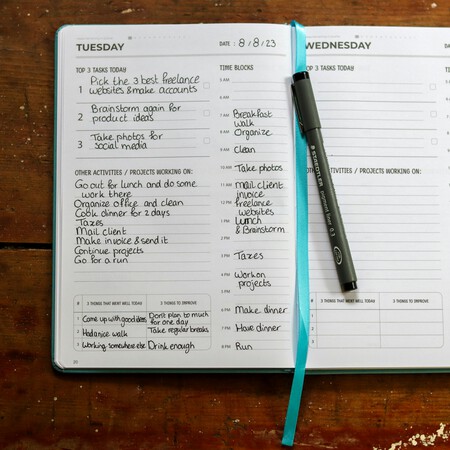 TUESDAY
DATE : 8/8/23
TOP 3 TASKS TODAY
1 Pick the 3 best freelance
websites & make accounts
2 Brainstorm again for
product ideas
3 Take photos for
social media
OTHER ACTIVITIES / PROJECTS WORKING ON:
Go out for lunch and do some
work there
Organize office and clean
Cook dinner for 2 days
Taxes
Mail client
Make invoice & send it
Continue projects
Go for a run
# 3 THINGS THAT WENT WELL TODAY 3 THINGS TO IMPROVE
1 Came up with good ideas Don't plan to much
for one day
2 Had a nice walk Take regular breaks
3 Working somewhere else Drink enough
TIME BLOCKS
5 AM
6 AM
7 AM Breakfast
walk
8 AM Organize
9 AM Clean
10 AM Take photos
11 AM Mail client
invoice
12 PM freelance
websites
1 PM Lunch
& Brainstorm
2 PM
3 PM Taxes
4 PM Work on
projects
5 PM
6 PM Make dinner
7 PM Have dinner
8 PM Run
WEDNESDAY
TOP 3 TASKS TODAY
ACTIVITIES / PROJECTS WORKING ON:
# 3 THINGS THAT WENT WELL TODAY 3 THINGS TO IMPROVE
1
2
3
STAEDTLER